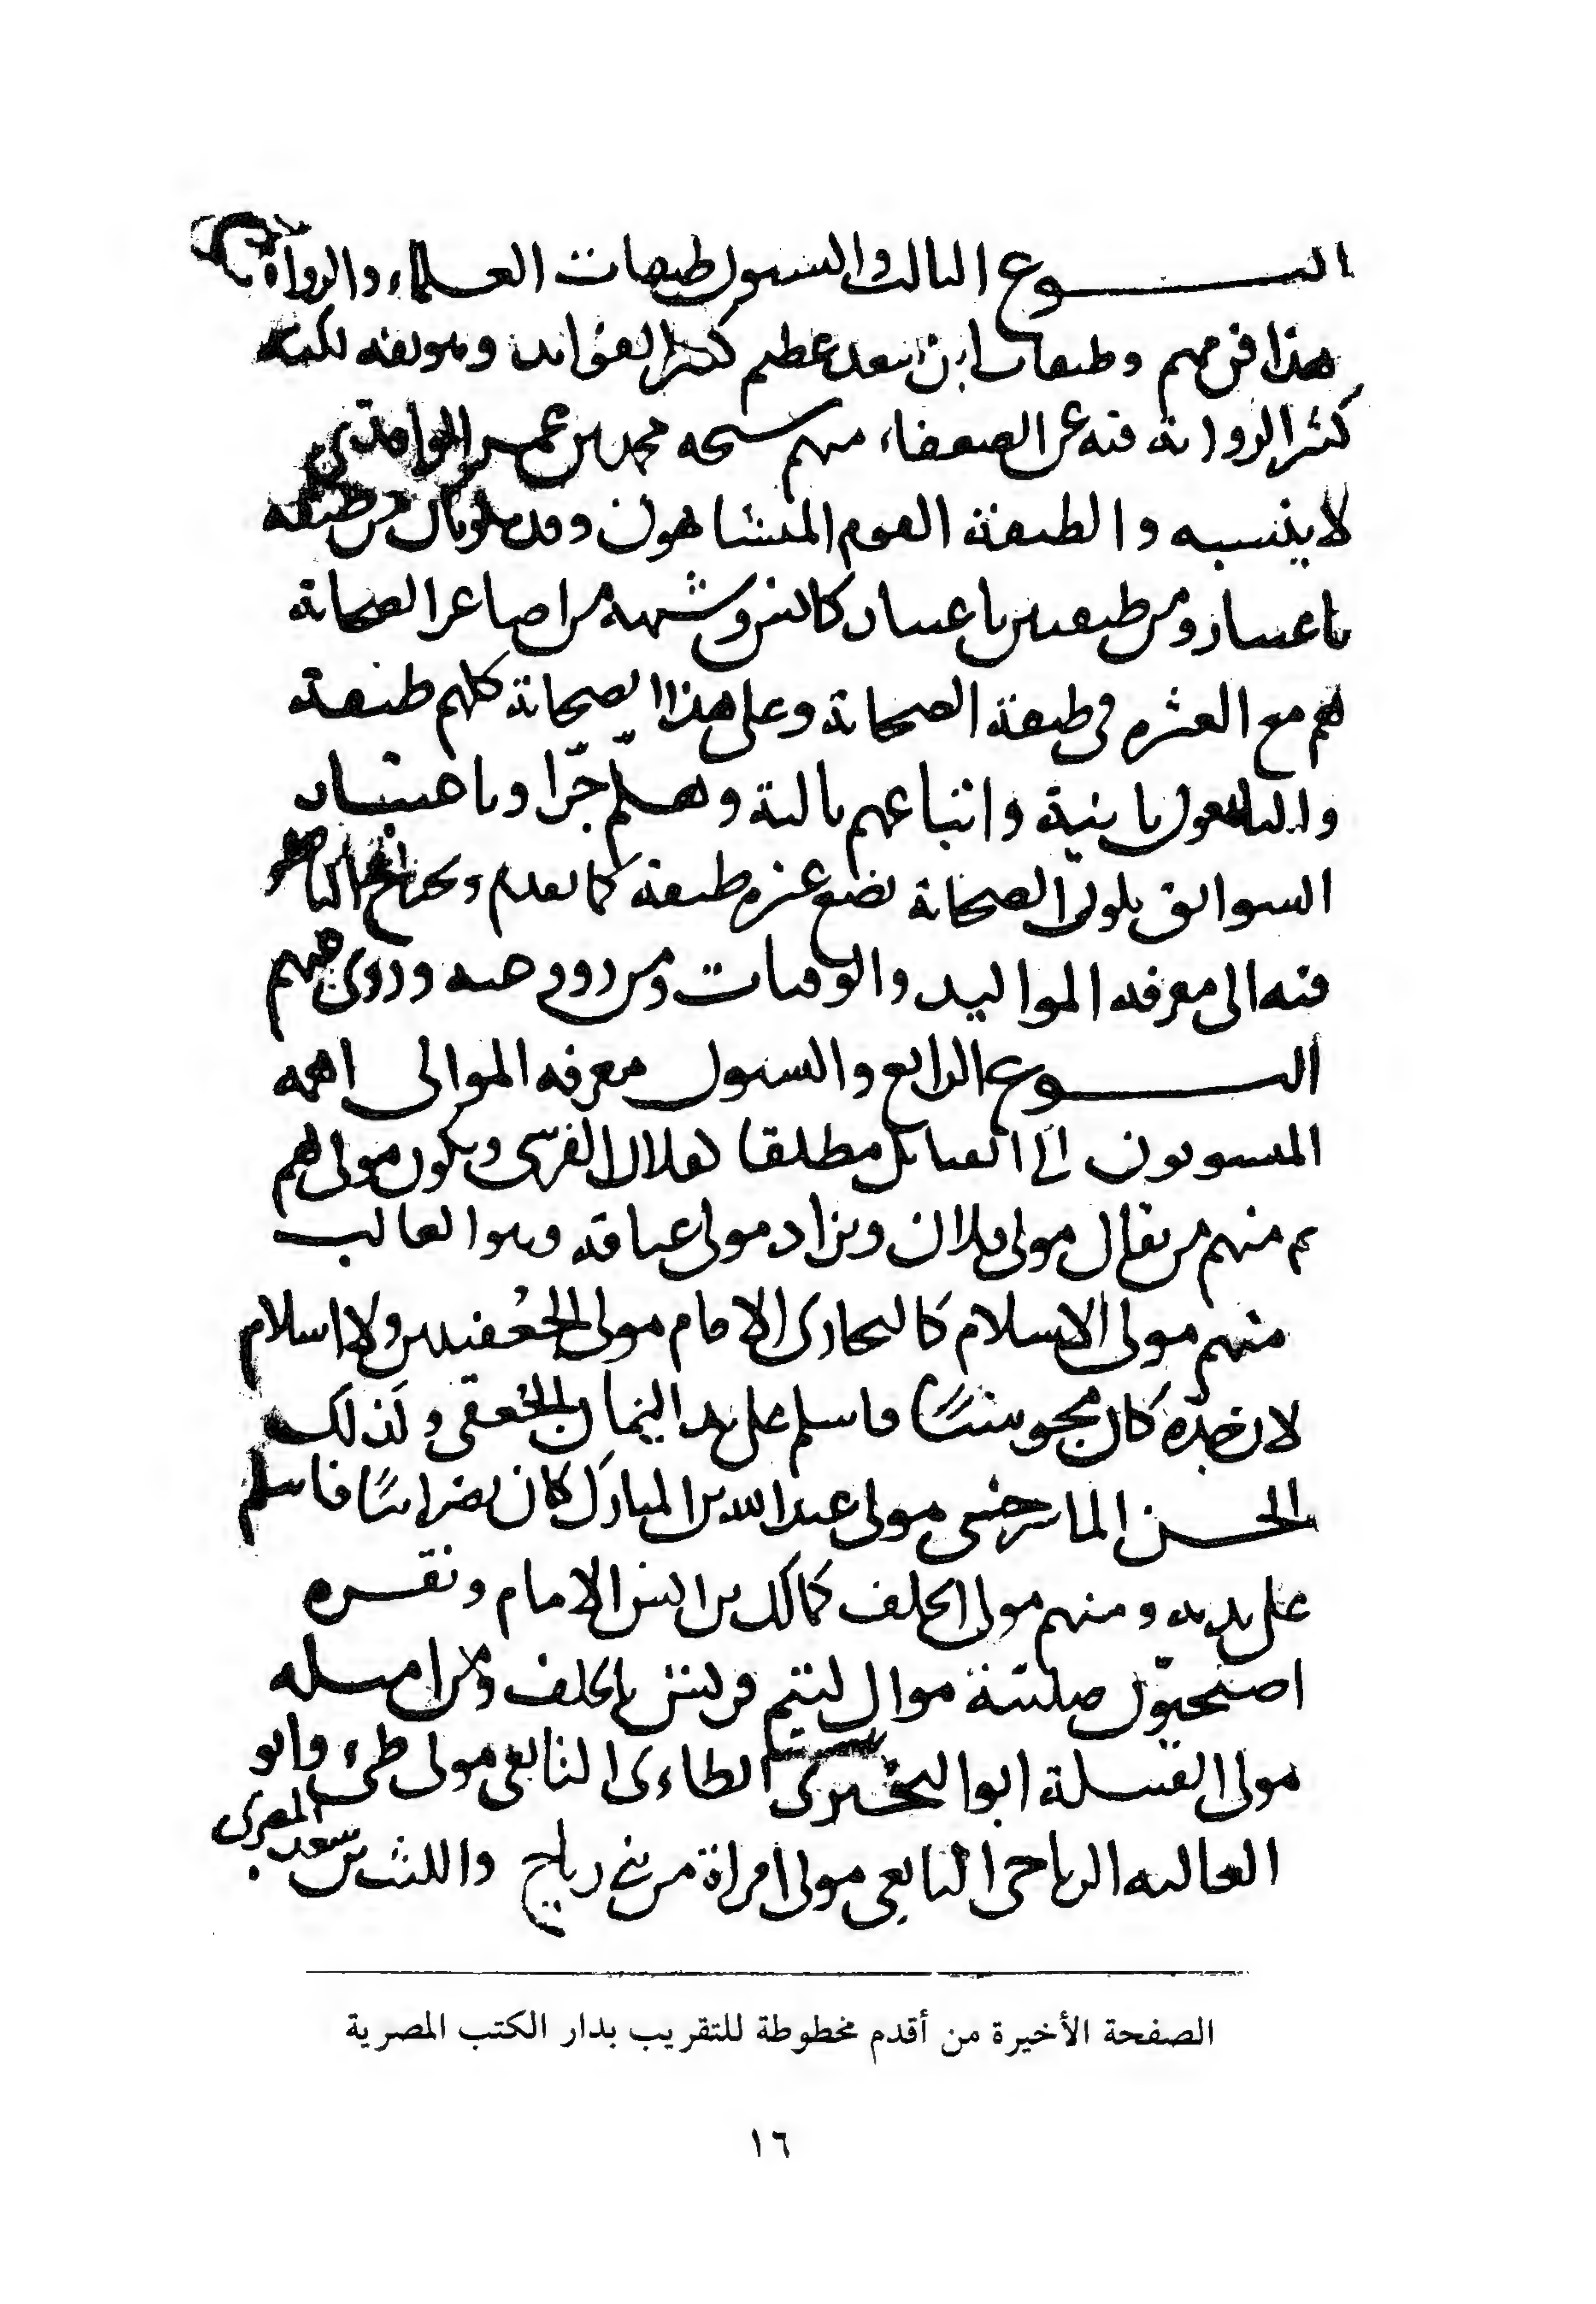 النـــوع الثالث والستون طبقات العلماء والرواة
هذا فن مهم وطبقات ابن سعد عظيم كثير الفوائد وهو ثقه لكنه
كثير الرواية فيه عن الضعفاء منهم شيخه محمد بن عمر الواقدي
لا ينسبه والطبقة القوم المتشابهون وقد يكونان من طبقه
باعتبار ومن طبقتين باعتبار كانس وشبهه من اصاغر الصحابة
هم مع العشره في طبقة الصحابة وعلى هذا الصحابة كلهم طبقة
والتابعون ثانية واتباعهم ثالثة وهلمّ جرّا وباعتبار
السوابق يكون الصحابة بضع عشره طبقة كما تقدم ويحتاج الناظر
فيه الى معرفه المواليد والوفيات ومن روو عنه وروى عنهم
النـــوع الرابع والستون معرفه الموالى اهمه
المنسوبون الى القبائل مطلقا كفلان القرشى ويكون مولى لهم
ثم منهم من يقال مولى فلان ويراد مولى عتاقه وهو الغالب
منهم مولى الاسلام كالبخارى الامام مولى الجُعفيين ولا اسلام
لان جدّه كان مجوسيًا فاسلم على يد اليمان الجعفى وكذلك
الحسن الماسرجسى مولى عبد الله بن المبارك كان نصرانيًا فاسلم
على يديه ومنهم مولى الحلف كمالك بن انس الامام ونفره
اصبحيّون صلبيّة موال لتيم قريش بالحلف ومن امثله
مولى القبيلة ابو البخترى الطاءى التابعى مولى طىء وابو
العاليه الرياحى التابعى مولى امراة من بنى رياح والليث بن سعد المصرى
الصفحة الأخيرة من أقدم مخطوطة للتقريب بدار الكتب المصرية
١٦